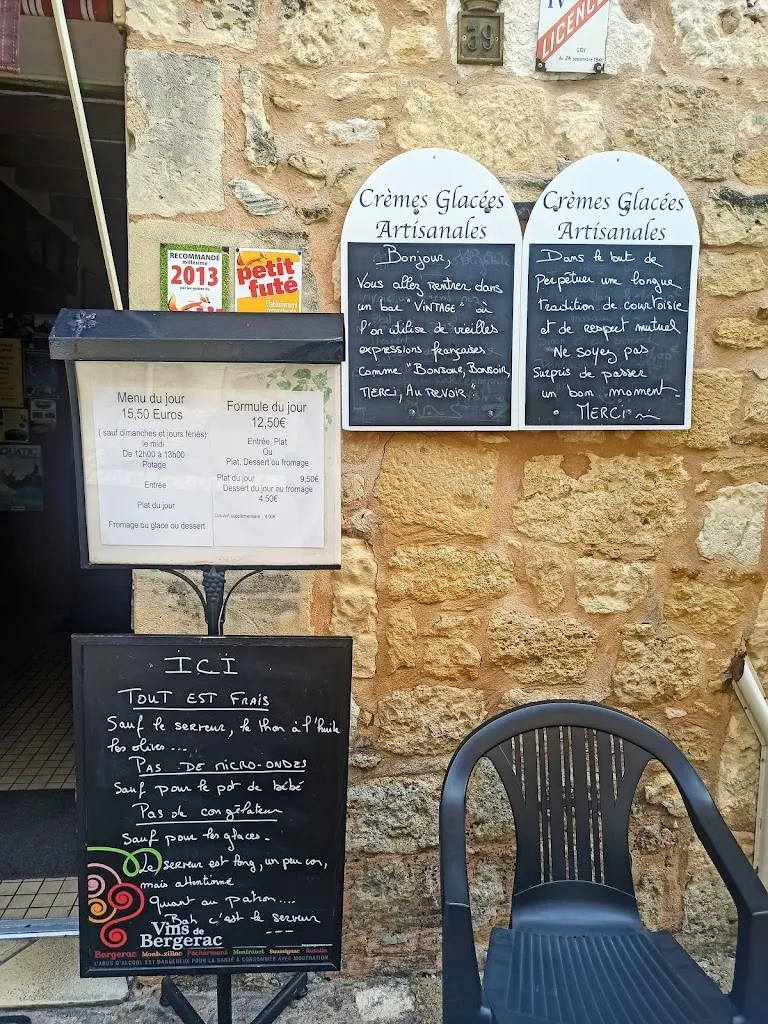 39
IV
LICENCE
LOI
du 24 septembre 1941
RECOMMANDÉ
millésime
2013
par les guides du
petit
futé
Crèmes Glacées
Artisanales
Bonjour,
Vous allez rentrer dans
un bar "VINTAGE" où
l'on utilise de vieilles
expressions françaises
comme "Bonjour, Bonsoir,
Merci, Au revoir".
Crèmes Glacées
Artisanales
Dans le but de
perpétuer une longue
tradition de courtoisie
et de respect mutuel
Ne soyez pas
Surpris de passer
un bon moment.
MERCI
Menu du jour
15,50 Euros
( sauf dimanches et jours fériés)
le midi
De 12h00 à 13h00
Potage
Entrée
Plat du jour
Fromage ou glace ou dessert
Formule du jour
12,50€
Entrée, Plat
Ou
Plat, Dessert ou fromage
Plat du jour 9,50€
Dessert du jour ou fromage
4,50€
Couvert supplémentaire : 4,00€
ICI
TOUT EST FRAIS
Sauf le serveur, le thon à l'huile
les olives ...
PAS DE MICRO-ONDES
Sauf pour le pot de bébé
Pas de congélateur
Sauf pour les glaces.
Le serveur est long, un peu con,
mais attentionné
quant au patron....
Bah c'est le serveur
---
Vins de
Bergerac
Bergerac Monbazillac Pécharmant Montravel Saussignac Rosette
L'ABUS D'ALCOOL EST DANGEREUX POUR LA SANTÉ À CONSOMMER AVEC MODÉRATION